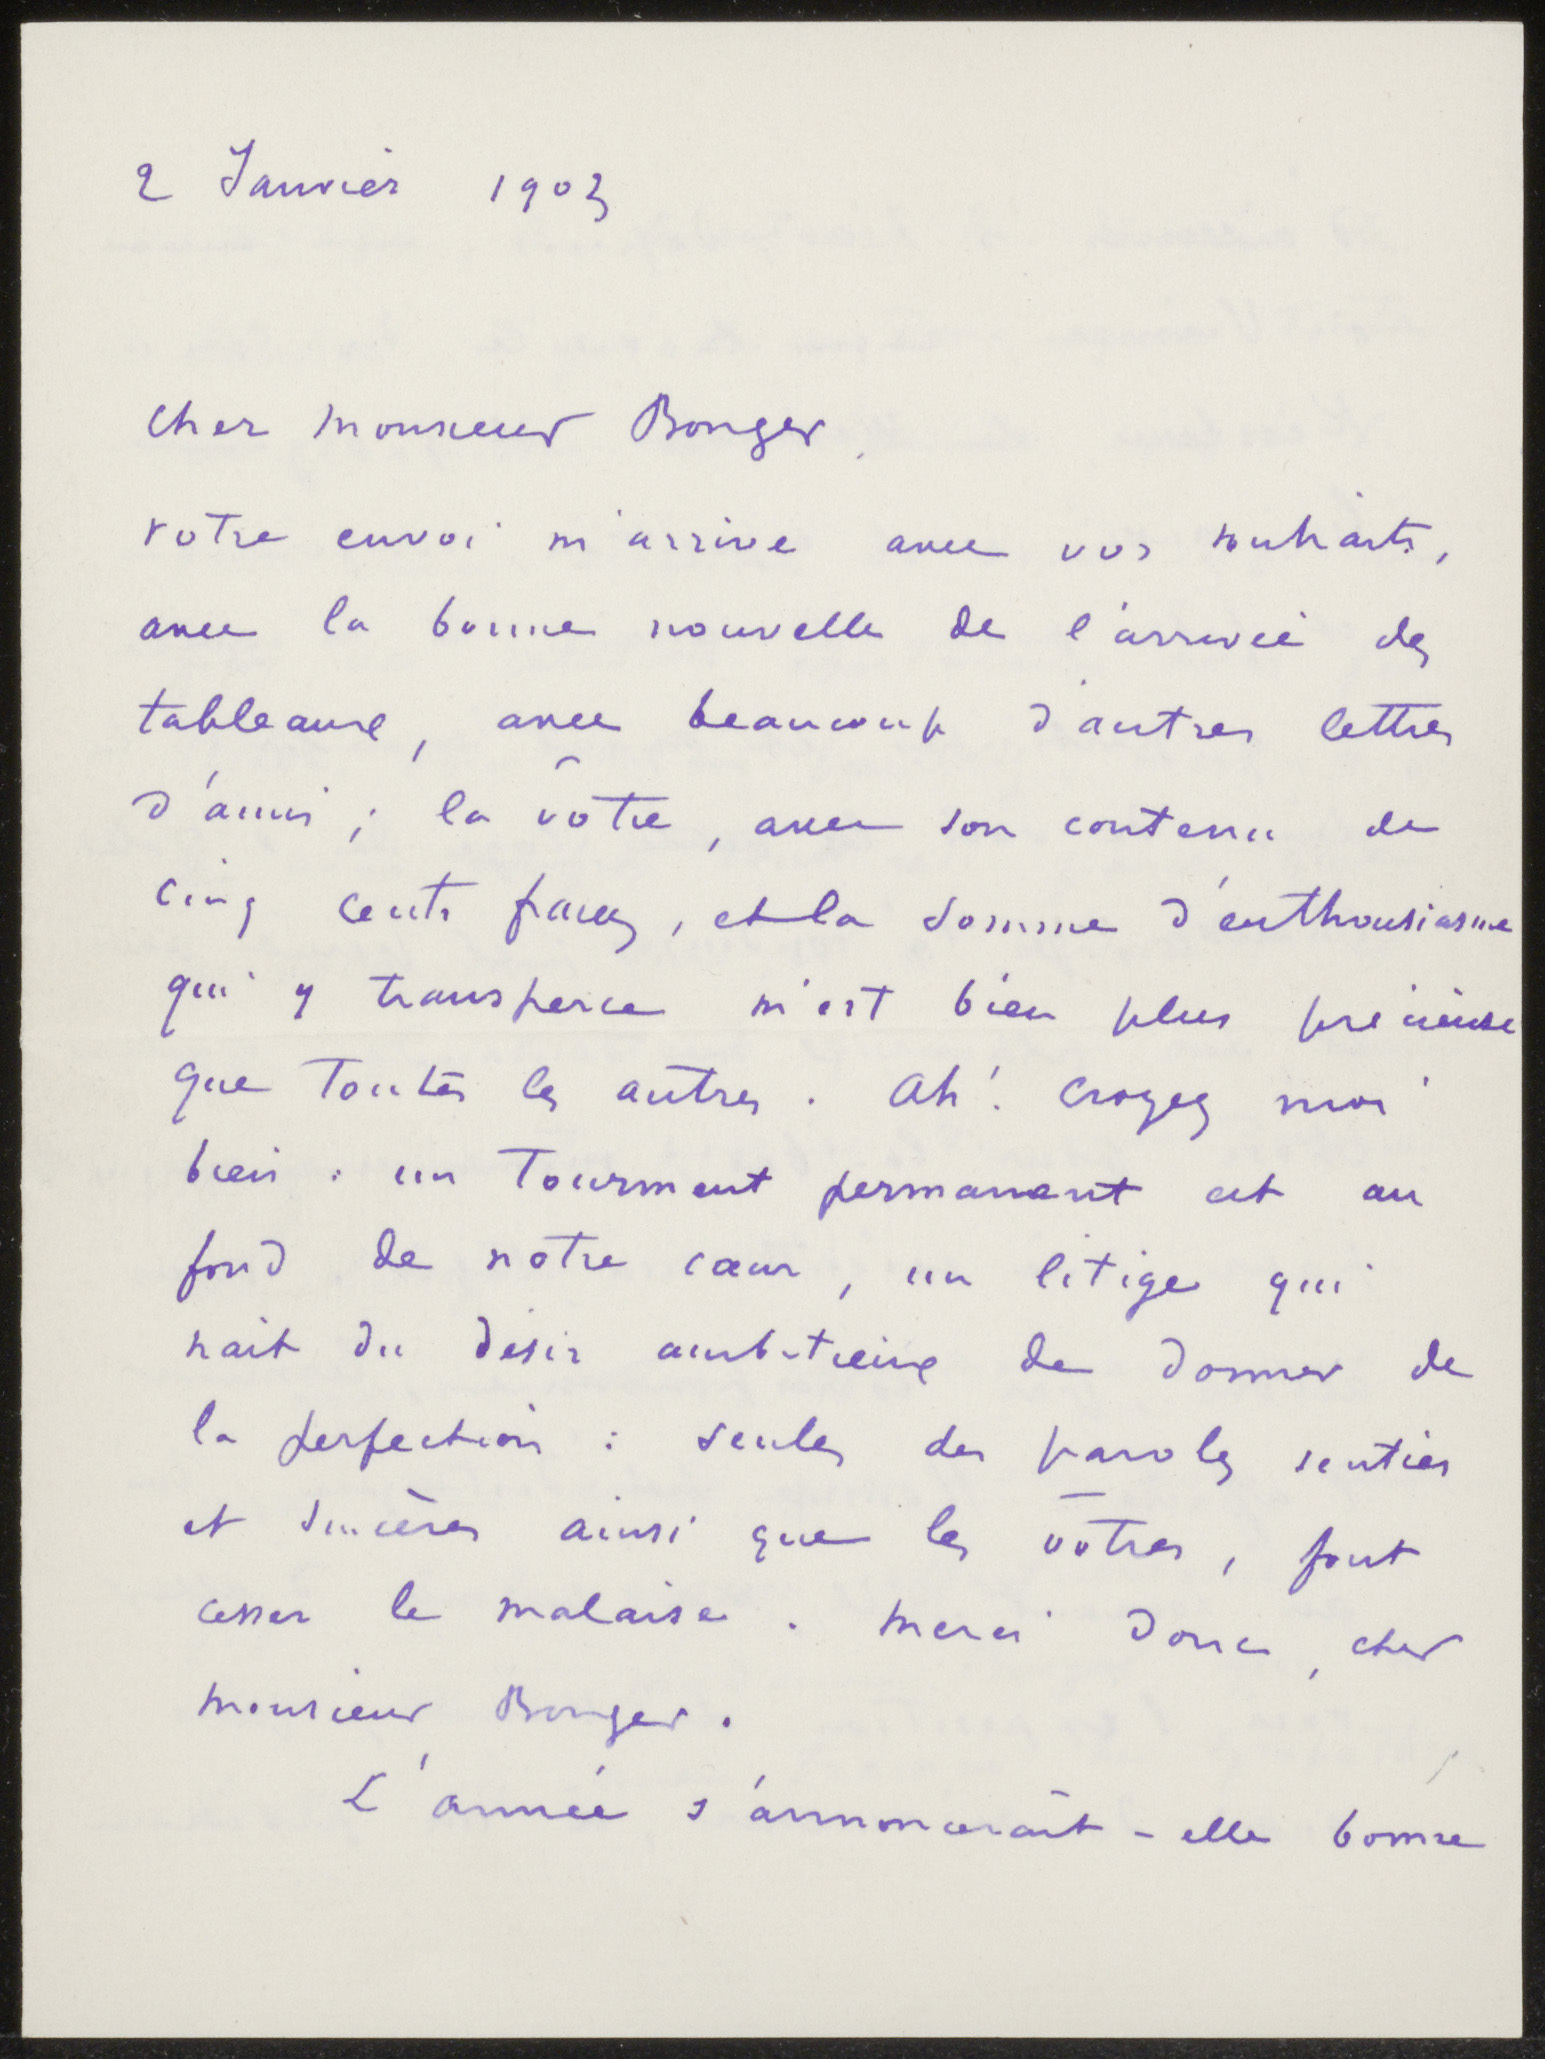 2 Janvier 1903
Cher Monsieur Bonger,
votre envoi m'arrive avec vos souhaits,
avec la bonne nouvelle de l'arrivée des
tableaux, avec beaucoup d'autres lettres
d'amis ; la vôtre, avec son contenu de
cinq cents francs, et la somme d'enthousiasme
qui y transperce m'est bien plus précieuse
que toutes les autres. Ah! Croyez moi
bien : un tourment permanent est au
fond de notre cœur, un litige qui
nait du désir ambitieux de donner de
la perfection : seules des paroles senties
et sincères ainsi que les vôtres, font
cesser le malaise. Merci donc, cher
Monsieur Bonger.
L'année s'annoncerait-elle bonne